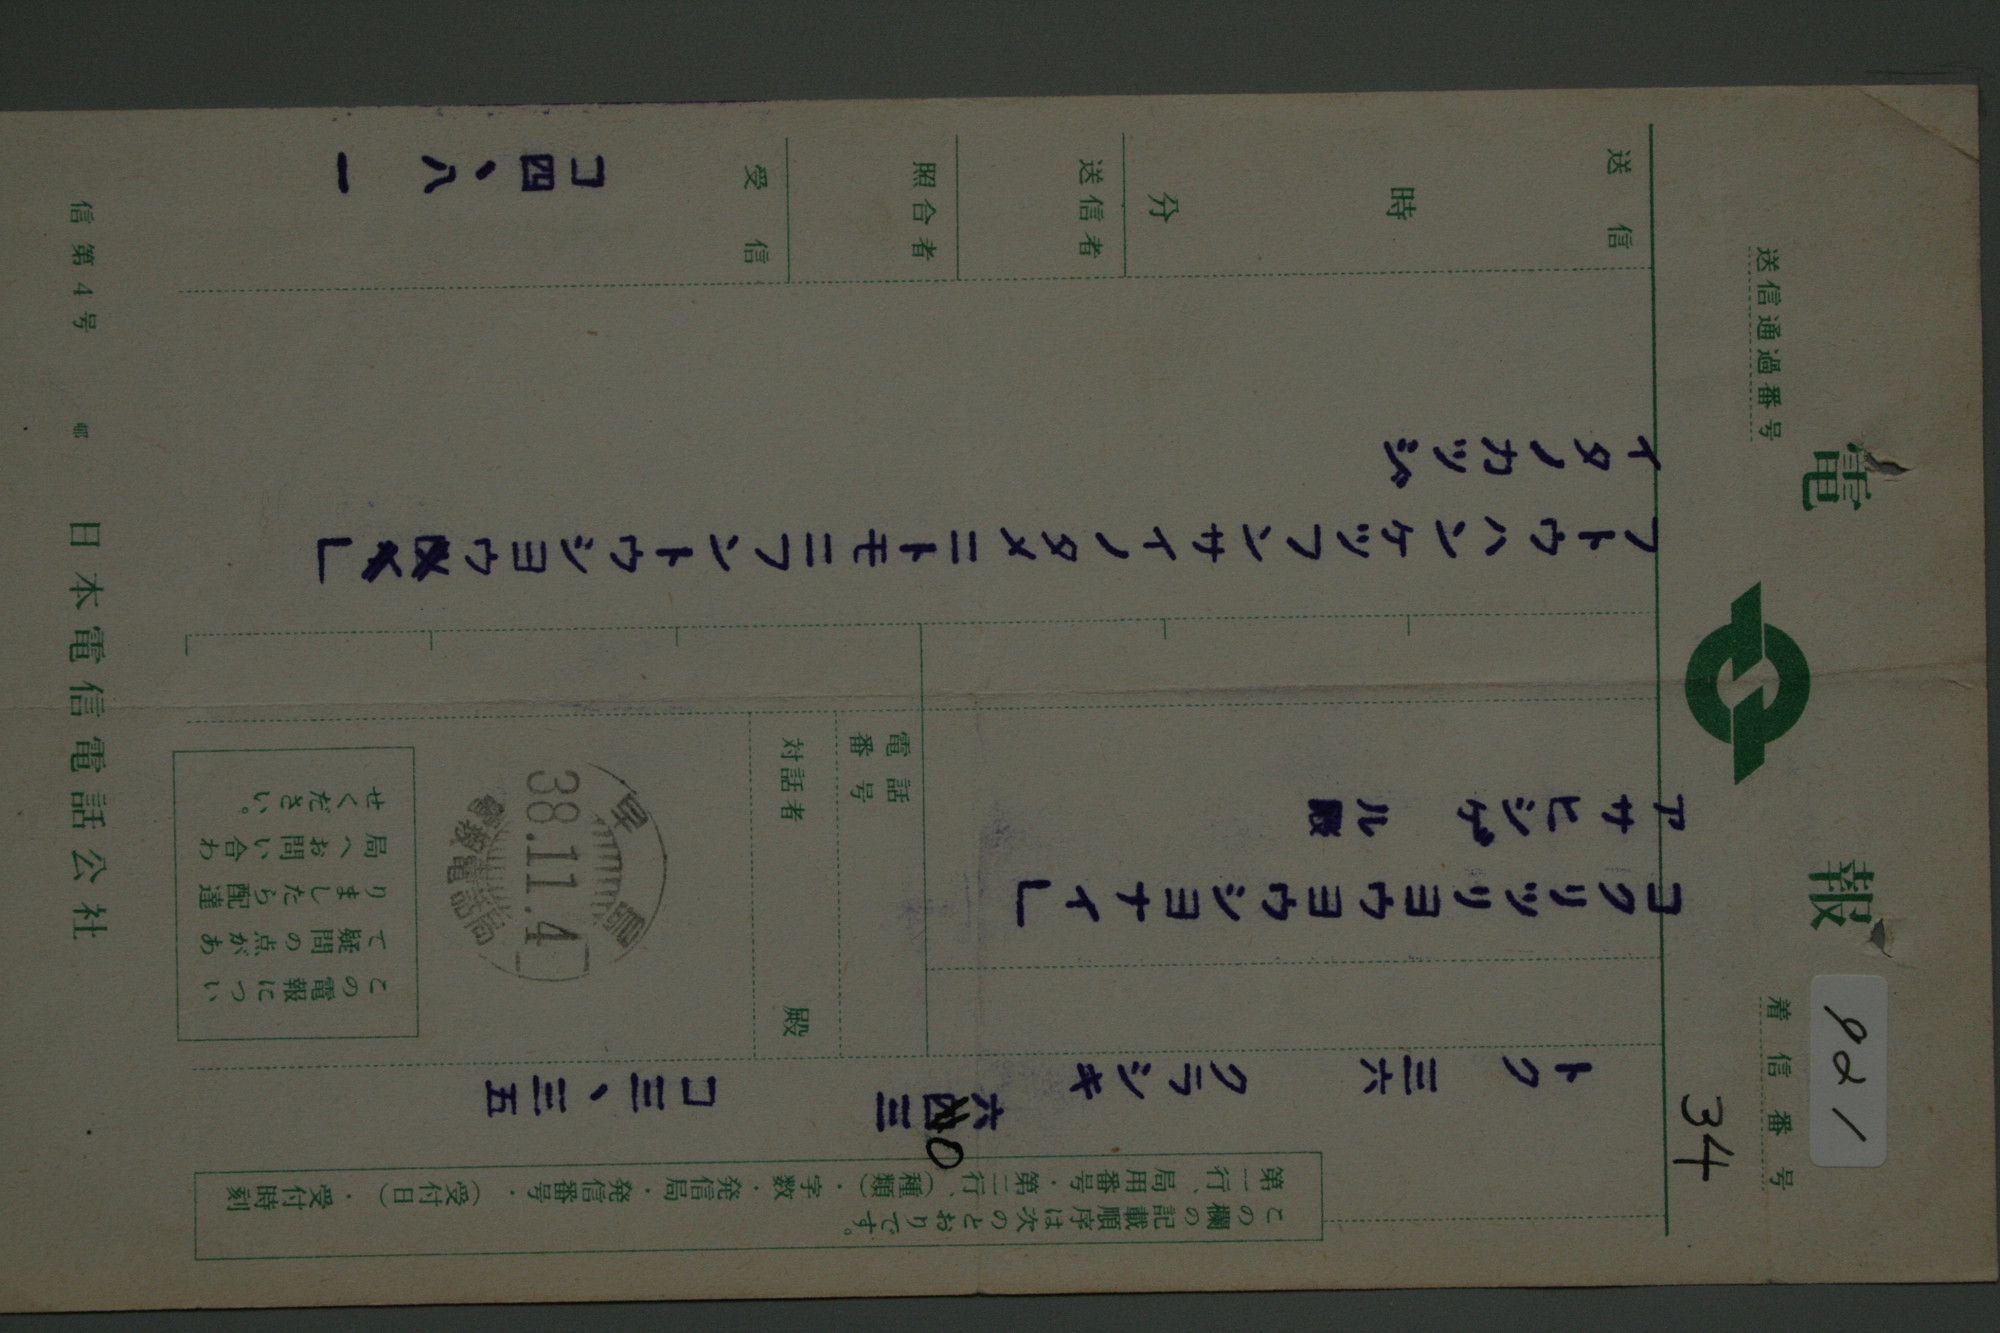 電報
送信通過番号
着信番号
921
34
この欄の記載順序は次のとおりです。
第一行、局用番号・第二行、(種類)・字数・発信局・発信番号・(受付日)・受付時刻
トク 三六 クラシキ 六四三 コ三、三五
0
コクリツリヨウヨウシヨナイ」
アサヒシゲル殿
電話番号
対話者 殿
早島
38.11.4
電報電話局
この電報につい
て疑問の点があ
りましたら配達
局へお問い合わ
せください。
フトウハンケツフンサイノタメニトモニフントウシヨウ」
イタノカツジ
送信
時
分
送信者
照合者
受信
コ四、八 一
信第4号
日本電信電話公社